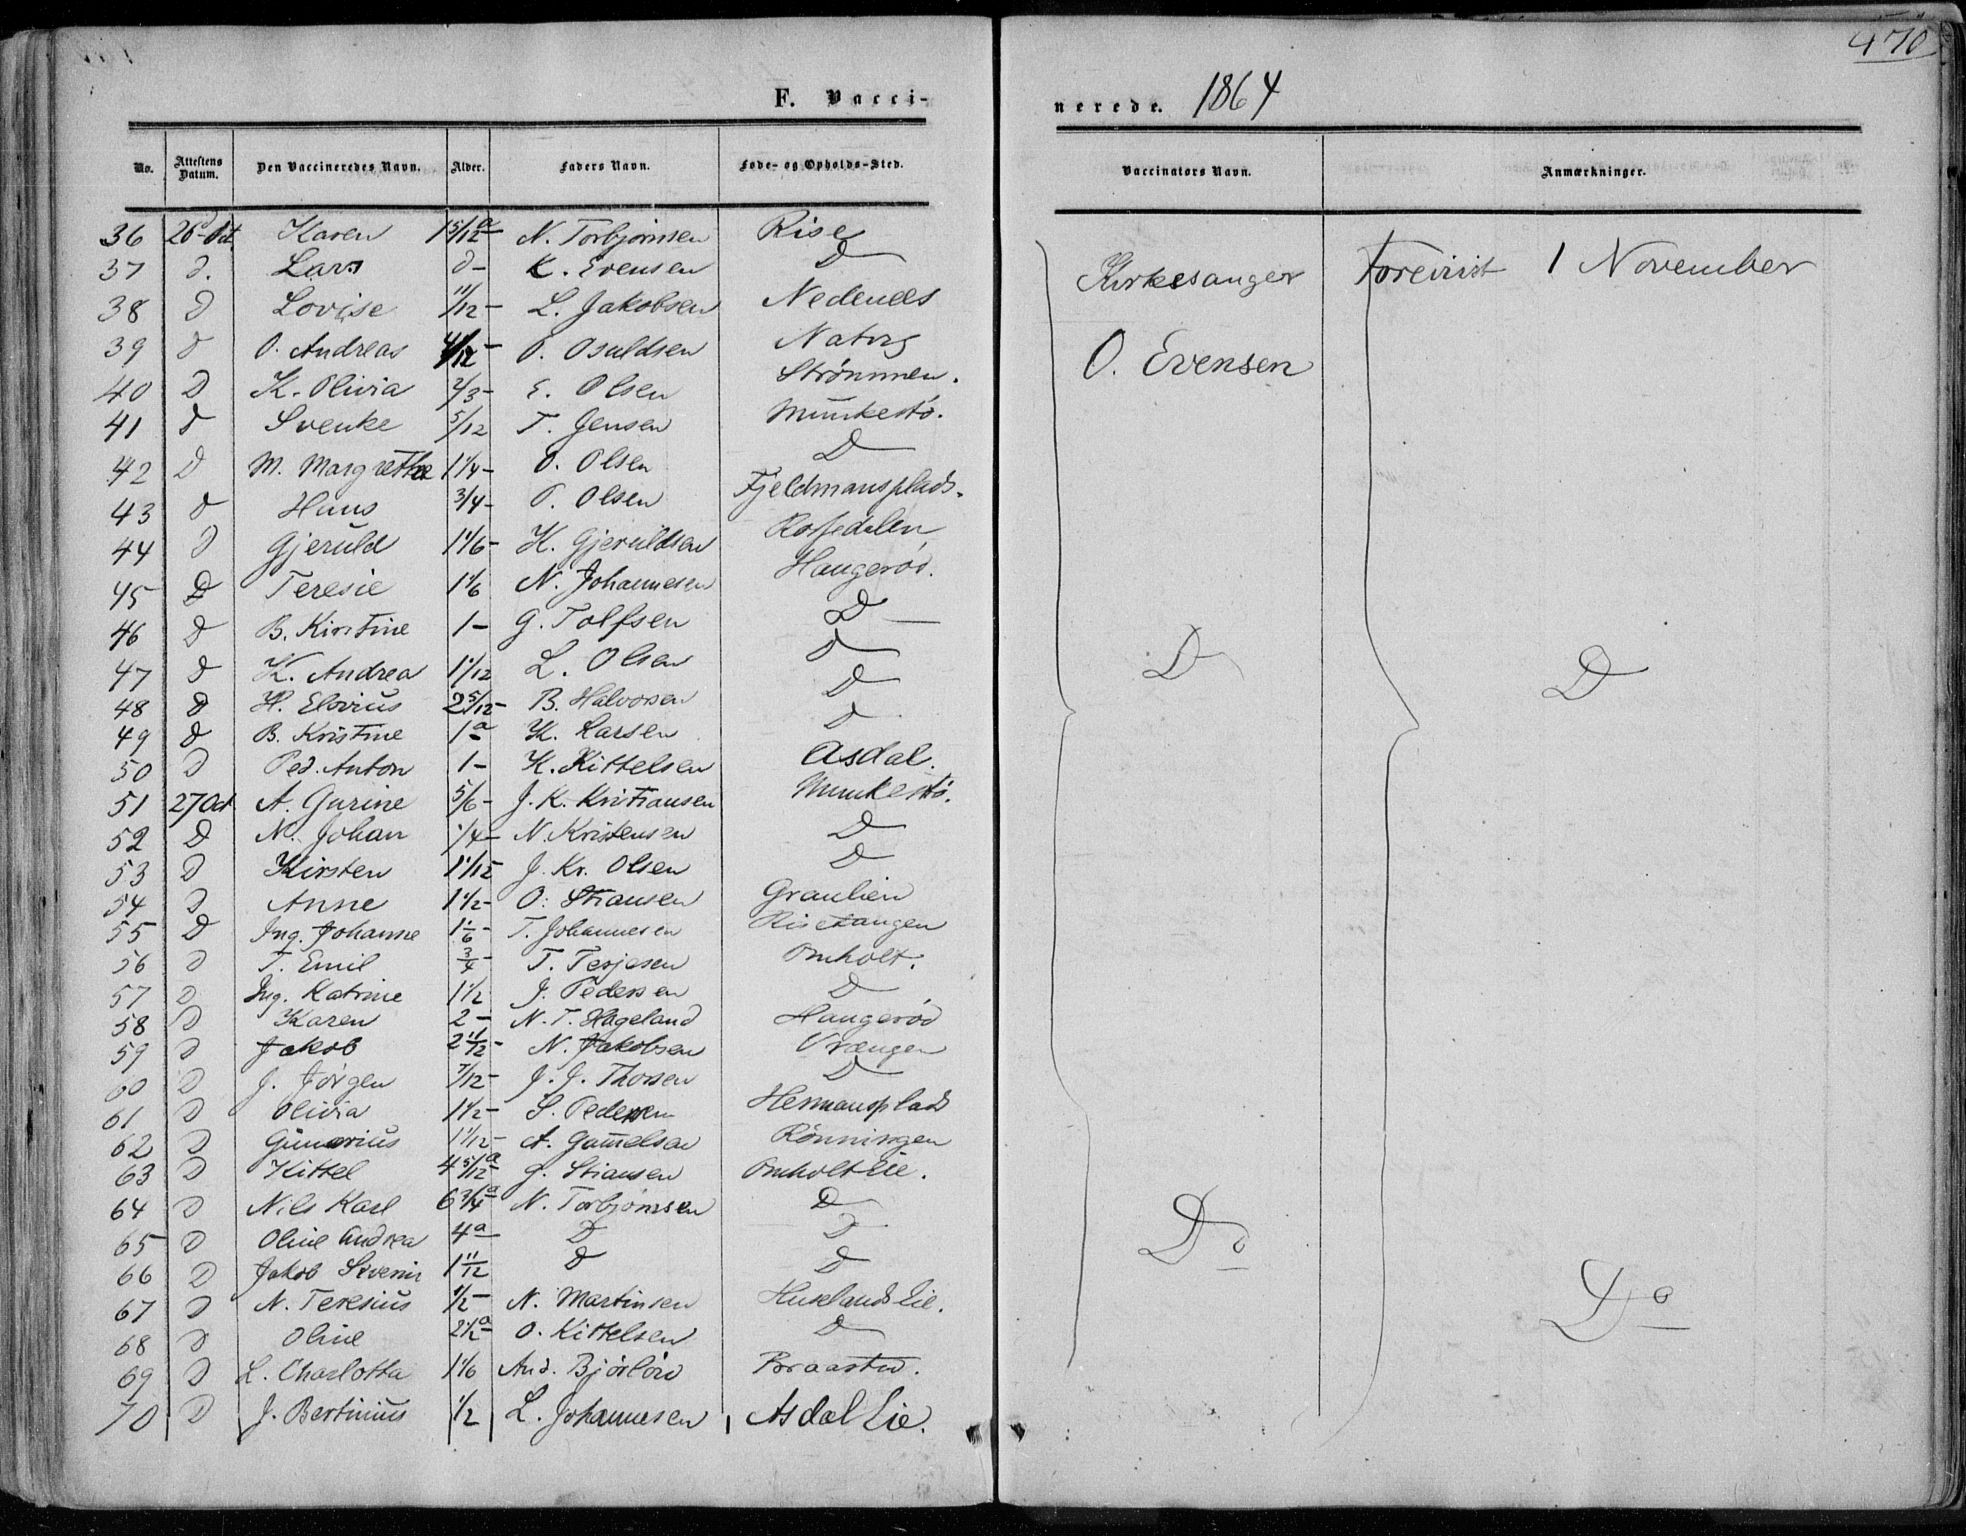 470
F. Vaccinerede. 1864
No. Attestens Datum. Den Vaccineredes Navn. Alder. Faders Navn. Føde- og Opholds-Sted. Vaccinators Navn. Anmærkninger.
36 26 Oct Karen 1 5/12 a N. Torbjørnsen Rise
37 D. Lars D - K. Evensen D
Kirkesanger Forevist 1 November
38 D Lovise 11/12 - L. Jakobsen Nedenes
39 D O. Andreas 4/12 - O. Osuldsen Natvig
O. Evensen
40 D K. Olivia 2/3 - E. Olsen Strømmen.
41 D Svenke 5/12 T. Jensen Munkestø.
42 D M. Margrethe 1 1/4 - O. Olsen D
43 D Hans 3/4 - P. Olsen Fjeldmansplads.
44 D Gjeruld 1 1/6 - K. Gjeruldsen Rossedalen
45 D Teresie 1 1/6 N. Johannesen Haugerød.
46 D B. Kirstine 1 - G. Tolfsen D
47 D K. Andrea 1 1/12 L. Olsen D
D D
48 D H. Elevius 2 5/12 - B. Halvorsen D
49 D B. Kristine 1 a K. Larsen D
50 D Ped. Anton 1 - K. Kittelsen Asdal.
51 27 Oct A. Gurine 5/6 - J. K. Kristiansen Munkestø.
52 D N. Johan 1/4 - N. Kristensen D
53 D Kirsten 1 1/12 J. Kr. Olsen D
54 D Anne 1 1/2 - O. Stiansen Graulien
55 D Ing. Johanne 1 1/6 - T. Johannesen Risetangen
56 D T. Emil 3/4 - T. Terjesen Omholt.
57 D Ing. Katrine 1 1/2 J. Pedersen D
58 D Karen 2 - N. T. Hageland Haugerød
59 D Jakob 2 11/12 - N. Jakobsen Vrængen
60 D J. Jørgen 7/12 - J. J. Thorsen D
61 D Olivia 1 1/2 - S. Pedersen Hermansplads
62 D Gunerius 1 1/12 - A. Gamelsen Rønningen
63 D Kittel 4 5/12 a G. Stiansen Omholt Eie.
64 D Nils Karl 6 3/4 a N. Torbjørnsen D
65 D Oline Andrea 4 a D D
Do
66 D Jakob Severin 1 11/12 D D
67 D N. Teresius 1/2 - N. Martinsen Huselands Eie.
Do
68 D Oline 2 1/2 a O. Kittelsen D
69 D L. Charlotta 1 1/6 And. Bjørlov Braastad.
70 D J. Bertinius 1/2 L. Johannesen Asdal Eie.